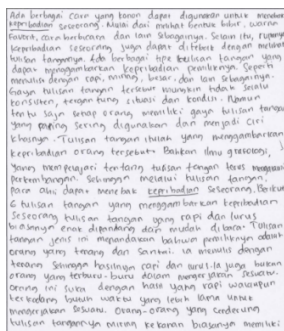 Ada berbagai cara yang dapat digunakan untuk menebak
kepribadian seseorang. Mulai dari melihat bentuk bibir, warna
favorit, cara berbicara dan lain sebagainya. Selain itu, rupanya
kepribadian seseorang juga dapat ditebak dengan melalui
tulisan tangannya. Ada berbagai tipe tulisan tangan yang
dapat menggambarkan kepribadian pemiliknya. Seperti
menulis dengan rapi, miring, besar, dan lain sebagainya.
Gaya tulisan tangan tersebut mungkin tidak selalu
konsisten, tergantung situasi dan kondisi. Namun
tentu saja setiap orang memiliki gaya tulisan tangan
yang paling sering digunakan dan menjadi ciri
khasnya. Tulisan tangan itulah yang menggambarkan
kepribadian orang tersebut. Bahkan ilmu grafologi,
yang mempelajari tentang tulisan tangan terus
perkembangan. Sehingga melalui tulisan tangan,
para ahli dapat menebak kepribadian seseorang. Berikut
6 tulisan tangan yang menggambarkan kepribadian
seseorang tulisan tangan yang rapi dan lurus
biasanya enak dipandang dan mudah dibaca. Tulisan
tangan jenis ini menandakan bahwa pemiliknya adalah
orang yang tenang dan santai. Ia menulis dengan
tenang sehingga hasilnya rapi dan lurus. Ia juga bukan
orang yang terburu-buru dalam mengerjakan sesuatu.
Orang ini suka dengan hasil yang rapi walaupun
terkadang butuh waktu yang lebih lama untuk
mengerjakan sesuatu. Orang-orang yang cenderung
tulisan tangannya miring ke kanan biasanya memiliki